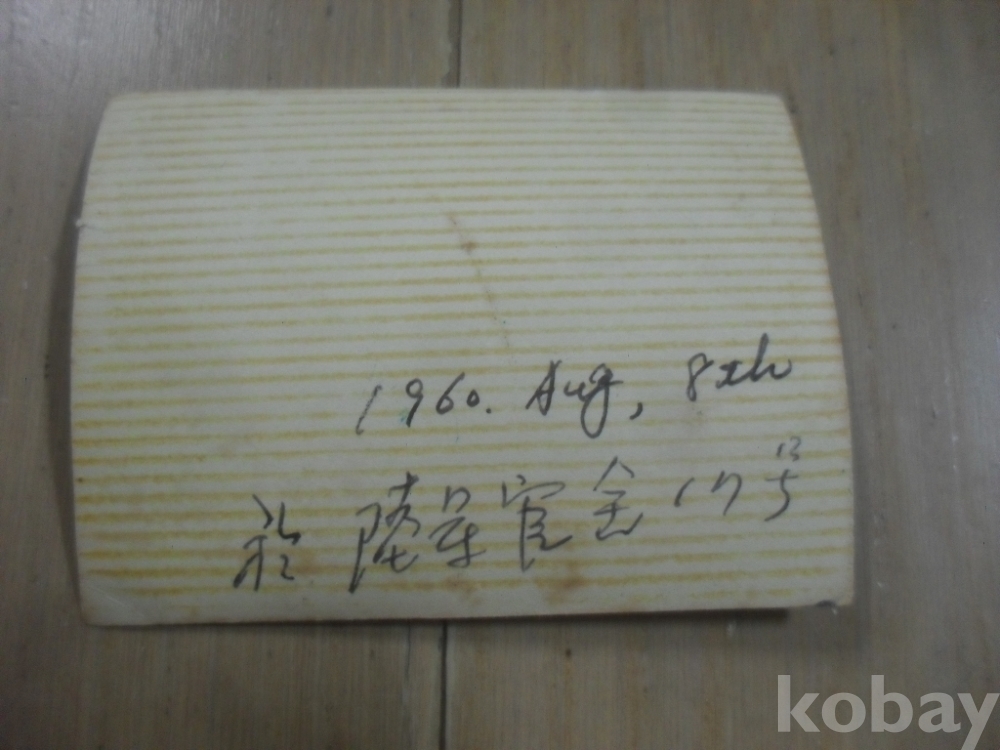 1960. Aug, 8th
於 陸軍官舍 17号
kobay